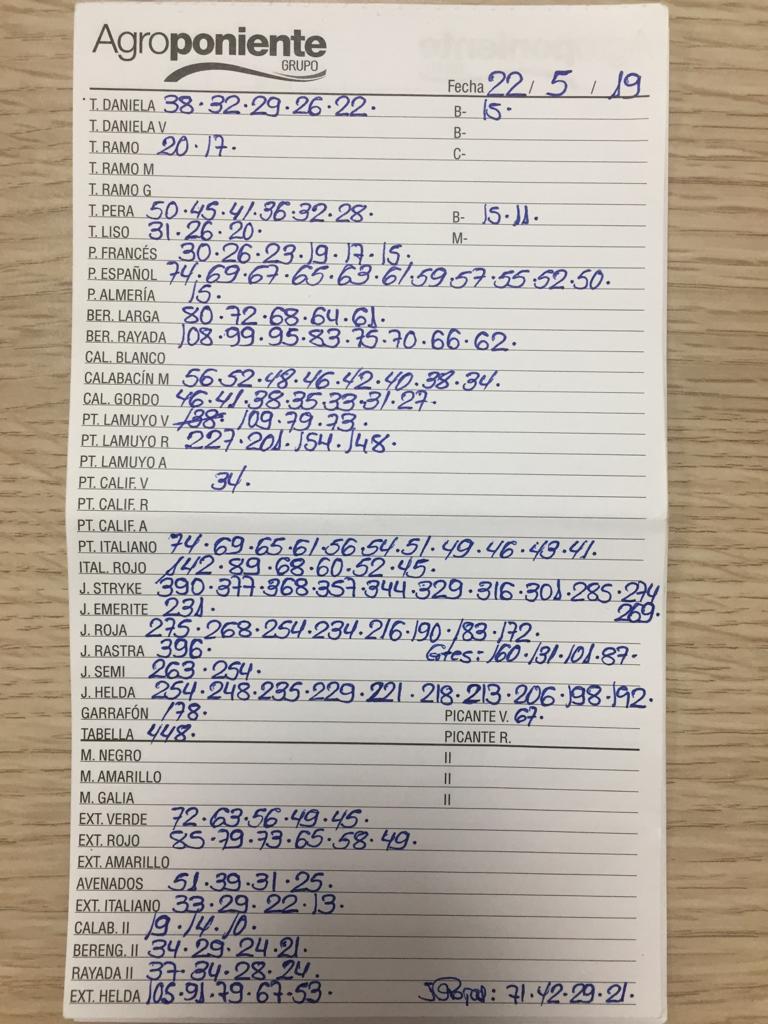 Agroponiente
GRUPO
Fecha 22 / 5 / 19
T. DANELA 38·32·29·26·22· B- 15·
T. DANIELA V B-
T. RAMO 20·17· C-
T. RAMO M
T. RAMO G
T. PERA 50·45·41·36·32·28· B- 15·11·
T. LISO 31·26·20· M-
P. FRANCÉS 30·26·23·19·17·15·
P. ESPAÑOL 74·69·67·65·63·61·59·57·55·52·50·
P. ALMERÍA 15·
BER. LARGA 80·72·68·64·61·
BER. RAYADA 108·99·95·83·75·70·66·62·
CAL. BLANCO
CALABACÍN M 56·52·48·46·42·40·38·34·
CAL. GORDO 46·41·38·35·33·31·27·
PT. LAMUYO V 109·79·73·
PT. LAMUYO R 227·201·154·148·
PT. LAMUYO A
PT. CALIF. V 34·
PT. CALIF. R
PT. CALIF. A
PT. ITALIANO 74·69·65·61·56·54·51·49·46·43·41·
ITAL. ROJO 142·89·68·60·52·45·
J. STRYKE 390·377·368·357·344·329·316·301·285·274
269·
J. EMERITE 231·
J. ROJA 275·268·254·234·216·190·183·172·
J. RASTRA 396· Gtes: 160·131·101·87·
J. SEMI 263·254·
J. HELDA 254·248·235·229·221·218·213·206·198·192·
GARRAFÓN 178· PICANTE V. 67·
TABELLA 448· PICANTE R.
M. NEGRO II
M. AMARILLO II
M. GALIA II
EXT. VERDE 72·63·56·49·45·
EXT. ROJO 85·79·73·65·58·49·
EXT. AMARILLO
AVENADOS 51·39·31·25·
EXT. ITALIANO 33·29·22·13·
CALAB. II 19·14·10·
BERENG. II 34·29·24·21·
RAYADA II 37·34·28·24·
EXT. HELDA 105·91·79·67·53· : 71·42·29·21·